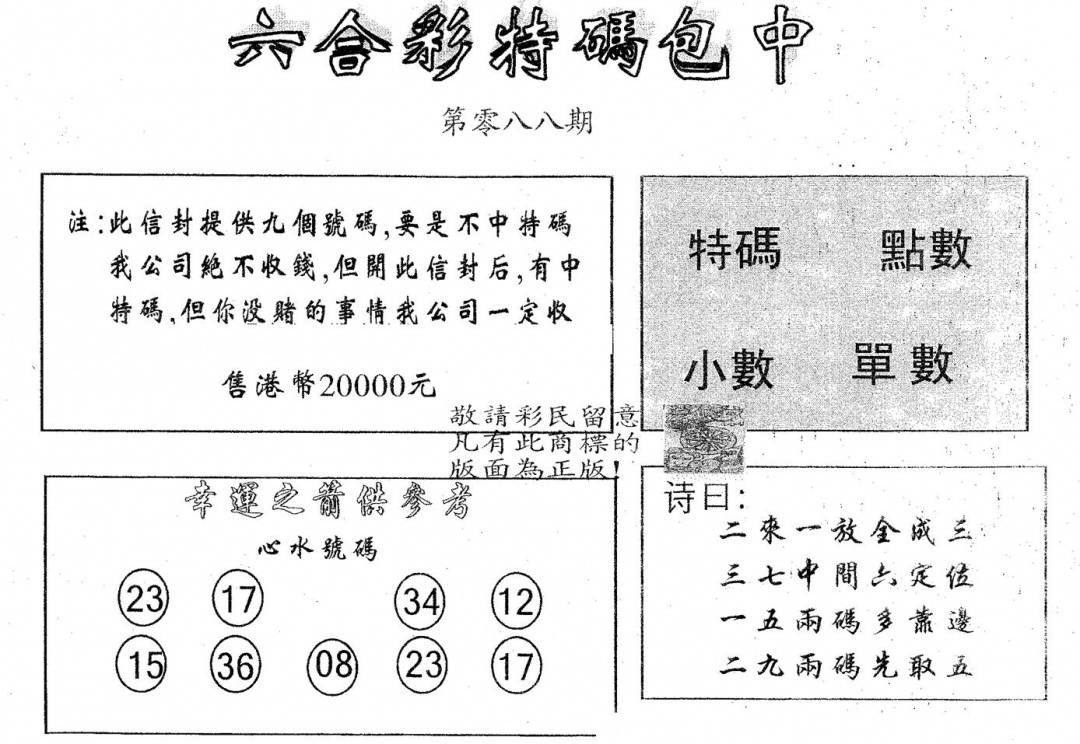 六合彩特碼包中
第零八八期
注:此信封提供九個號碼,要是不中特碼
我公司絕不收錢,但開此信封后,有中
特碼,但你没賭的事情我公司一定收
售港幣20000元
特碼 點數
小數 單數
敬請彩民留意
凡有此商標的
版面為正版!
幸運之箭供參考
心水號碼
23 17 34 12
15 36 08 23 17
诗曰:
二來一放全成三
三七中間六定位
一五兩碼多靠邊
二九兩碼先取五